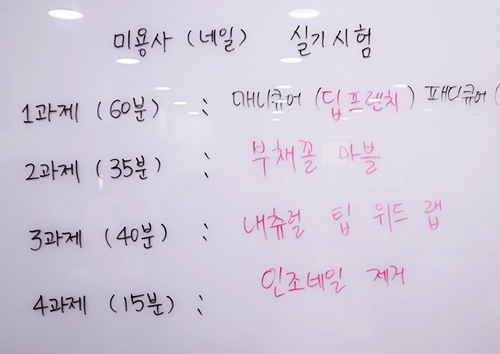 미용사 (네일) 실기시험
1과제 (60분) : 매니큐어 (팁프렌치) 패디큐어 (
2과제 (35분) : 부채꼴 마블
3과제 (40분) : 내츄럴 팁 위드 랩
4과제 (15분) : 인조네일 제거